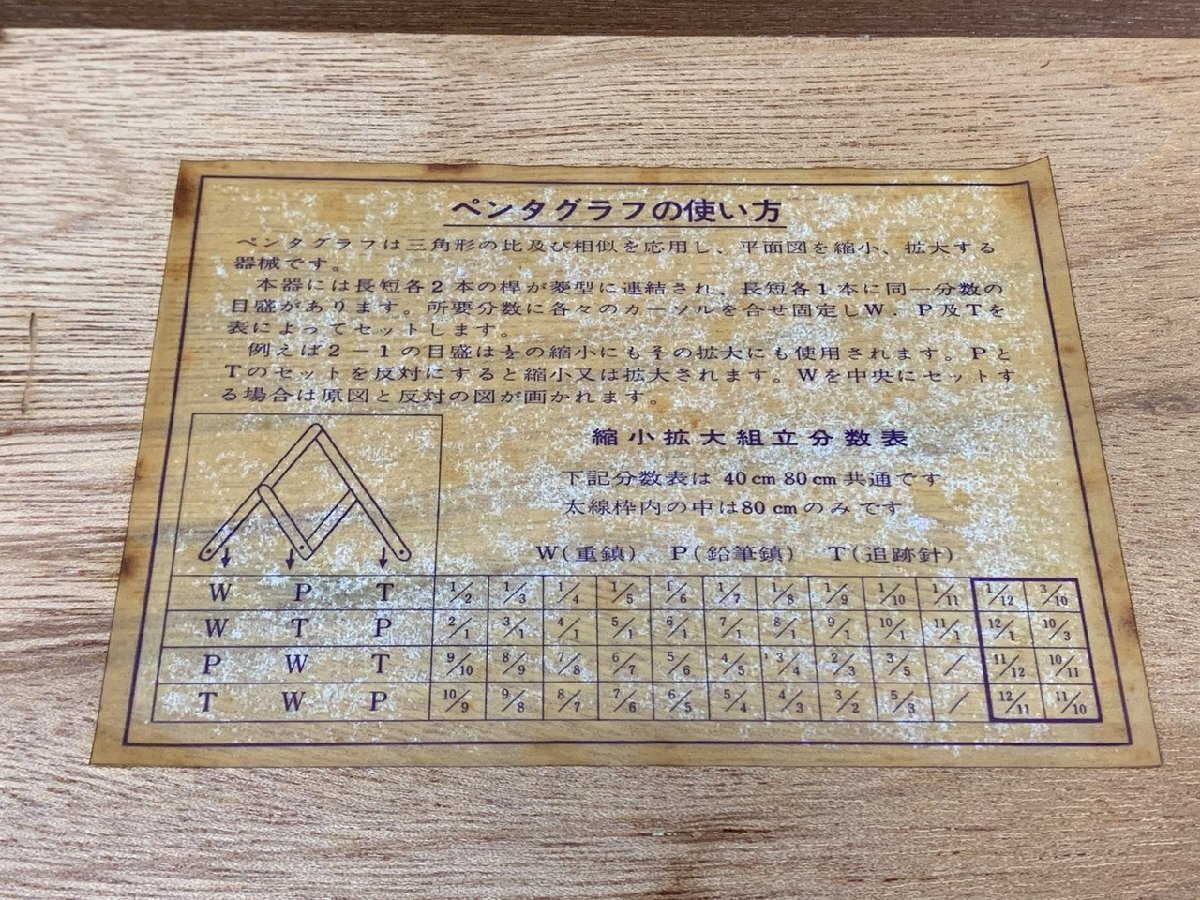 ペンタグラフの使い方
ペンタグラフは三角形の比及び相似を応用し、平面図を縮小、拡大する
器械です。
本器には長短各2本の桿が菱型に連結され、長短各1本に同一分数の
目盛があります。所要分数に各々のカーソルを合せ固定しW．P及Tを
表によってセットします。
例えば2－1の目盛は½の縮小にも2/1の拡大にも使用されます。Pと
Tのセットを反対にすると縮小又は拡大されます。Wを中央にセットす
る場合は原図と反対の図が画かれます。
縮小拡大組立分数表
下記分数表は 40cm 80cm 共通です
太線枠内の中は80cmのみです
W(重鎮) P(鉛筆鎮) T(追跡針)
W P T 1/2 1/3 1/4 1/5 1/6 1/7 1/8 1/9 1/10 1/11 1/12 3/10
W T P 2/1 3/1 4/1 5/1 6/1 7/1 8/1 9/1 10/1 11/1 12/1 10/3
P W T 9/10 8/9 7/8 6/7 5/6 4/5 3/4 2/3 3/5 / 11/12 10/11
T W P 10/9 9/8 8/7 7/6 6/5 5/4 4/3 3/2 5/3 / 12/11 11/10